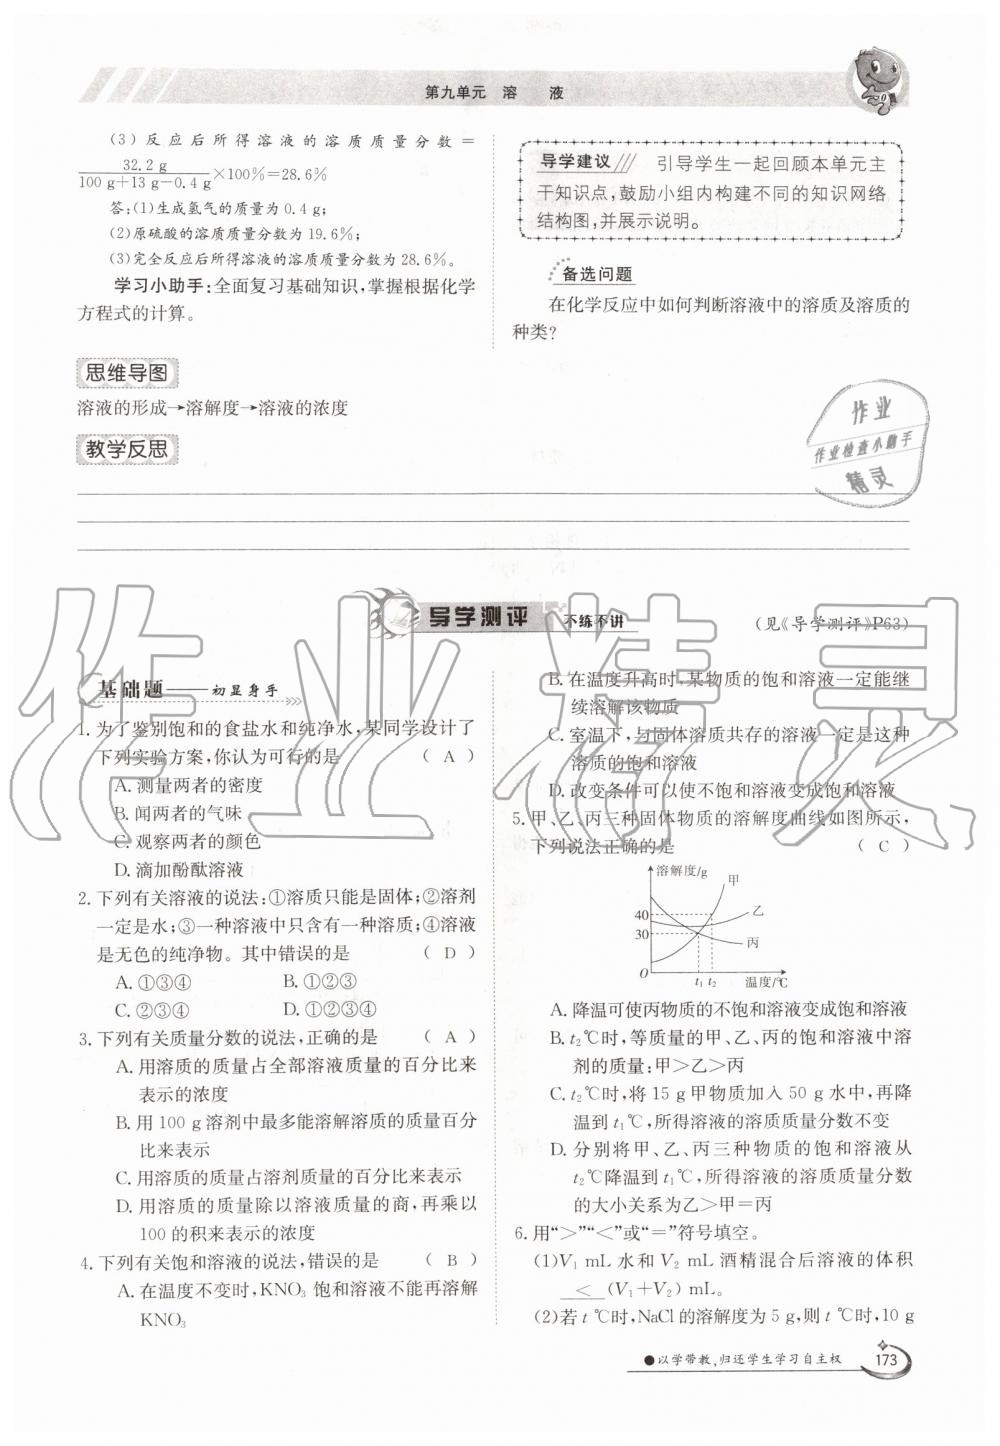 第九单元 溶 液
(3)反应后所得溶液的溶质质量分数=
32.2 g
100 g+13 g-0.4 g
×100%=28.6%
答:(1)生成氢气的质量为0.4 g;
(2)原硫酸的溶质质量分数为19.6%;
(3)完全反应后所得溶液的溶质质量分数为28.6%。
学习小助手:全面复习基础知识,掌握根据化学
方程式的计算。
导学建议 引导学生一起回顾本单元主
干知识点,鼓励小组内构建不同的知识网络
结构图,并展示说明。
备选问题
在化学反应中如何判断溶液中的溶质及溶质的
种类?
思维导图
溶液的形成→溶解度→溶液的浓度
教学反思
作业
作业检查小助手
精灵
作业精灵
导学测评 不练不讲
(见《导学测评》P63)
基础题——初显身手
1.为了鉴别饱和的食盐水和纯净水,某同学设计了
下列实验方案,你认为可行的是 ( A )
A. 测量两者的密度
B. 闻两者的气味
C. 观察两者的颜色
D. 滴加酚酞溶液
2. 下列有关溶液的说法:①溶质只能是固体;②溶剂
一定是水;③一种溶液中只含有一种溶质;④溶液
是无色的纯净物。其中错误的是 ( D )
A. ①③④ B. ①②③
C. ②③④ D. ①②③④
3. 下列有关质量分数的说法,正确的是 ( A )
A. 用溶质的质量占全部溶液质量的百分比来
表示的浓度
B. 用 100 g 溶剂中最多能溶解溶质的质量百分
比来表示
C. 用溶质的质量占溶剂质量的百分比来表示
D. 用溶质的质量除以溶液质量的商,再乘以
100 的积来表示的浓度
4. 下列有关饱和溶液的说法,错误的是 ( B )
A. 在温度不变时,KNO₃ 饱和溶液不能再溶解
KNO₃
B. 在温度升高时,某物质的饱和溶液一定能继
续溶解该物质
C. 室温下,与固体溶质共存的溶液一定是这种
溶质的饱和溶液
D. 改变条件可以使不饱和溶液变成饱和溶液
5. 甲、乙、丙三种固体物质的溶解度曲线如图所示,
下列说法正确的是 ( C )
溶解度/g
甲
乙
丙
40
30
O
t₁ t₂ 温度/℃
A. 降温可使丙物质的不饱和溶液变成饱和溶液
B. t₂℃时,等质量的甲、乙、丙的饱和溶液中溶
剂的质量:甲>乙>丙
C. t₂℃时,将 15 g甲物质加入 50 g 水中,再降
温到 t₁℃,所得溶液的溶质质量分数不变
D. 分别将甲、乙、丙三种物质的饱和溶液从
t₂℃降温到 t₁℃,所得溶液的溶质质量分数
的大小关系为乙>甲=丙
6. 用“>”“<”或“=”符号填空。
(1)V₁ mL 水和 V₂ mL 酒精混合后溶液的体积
< (V₁+V₂) mL。
(2)若 t ℃时,NaCl的溶解度为 5 g,则 t ℃时,10 g
●以学带教,归还学生学习自主权
173